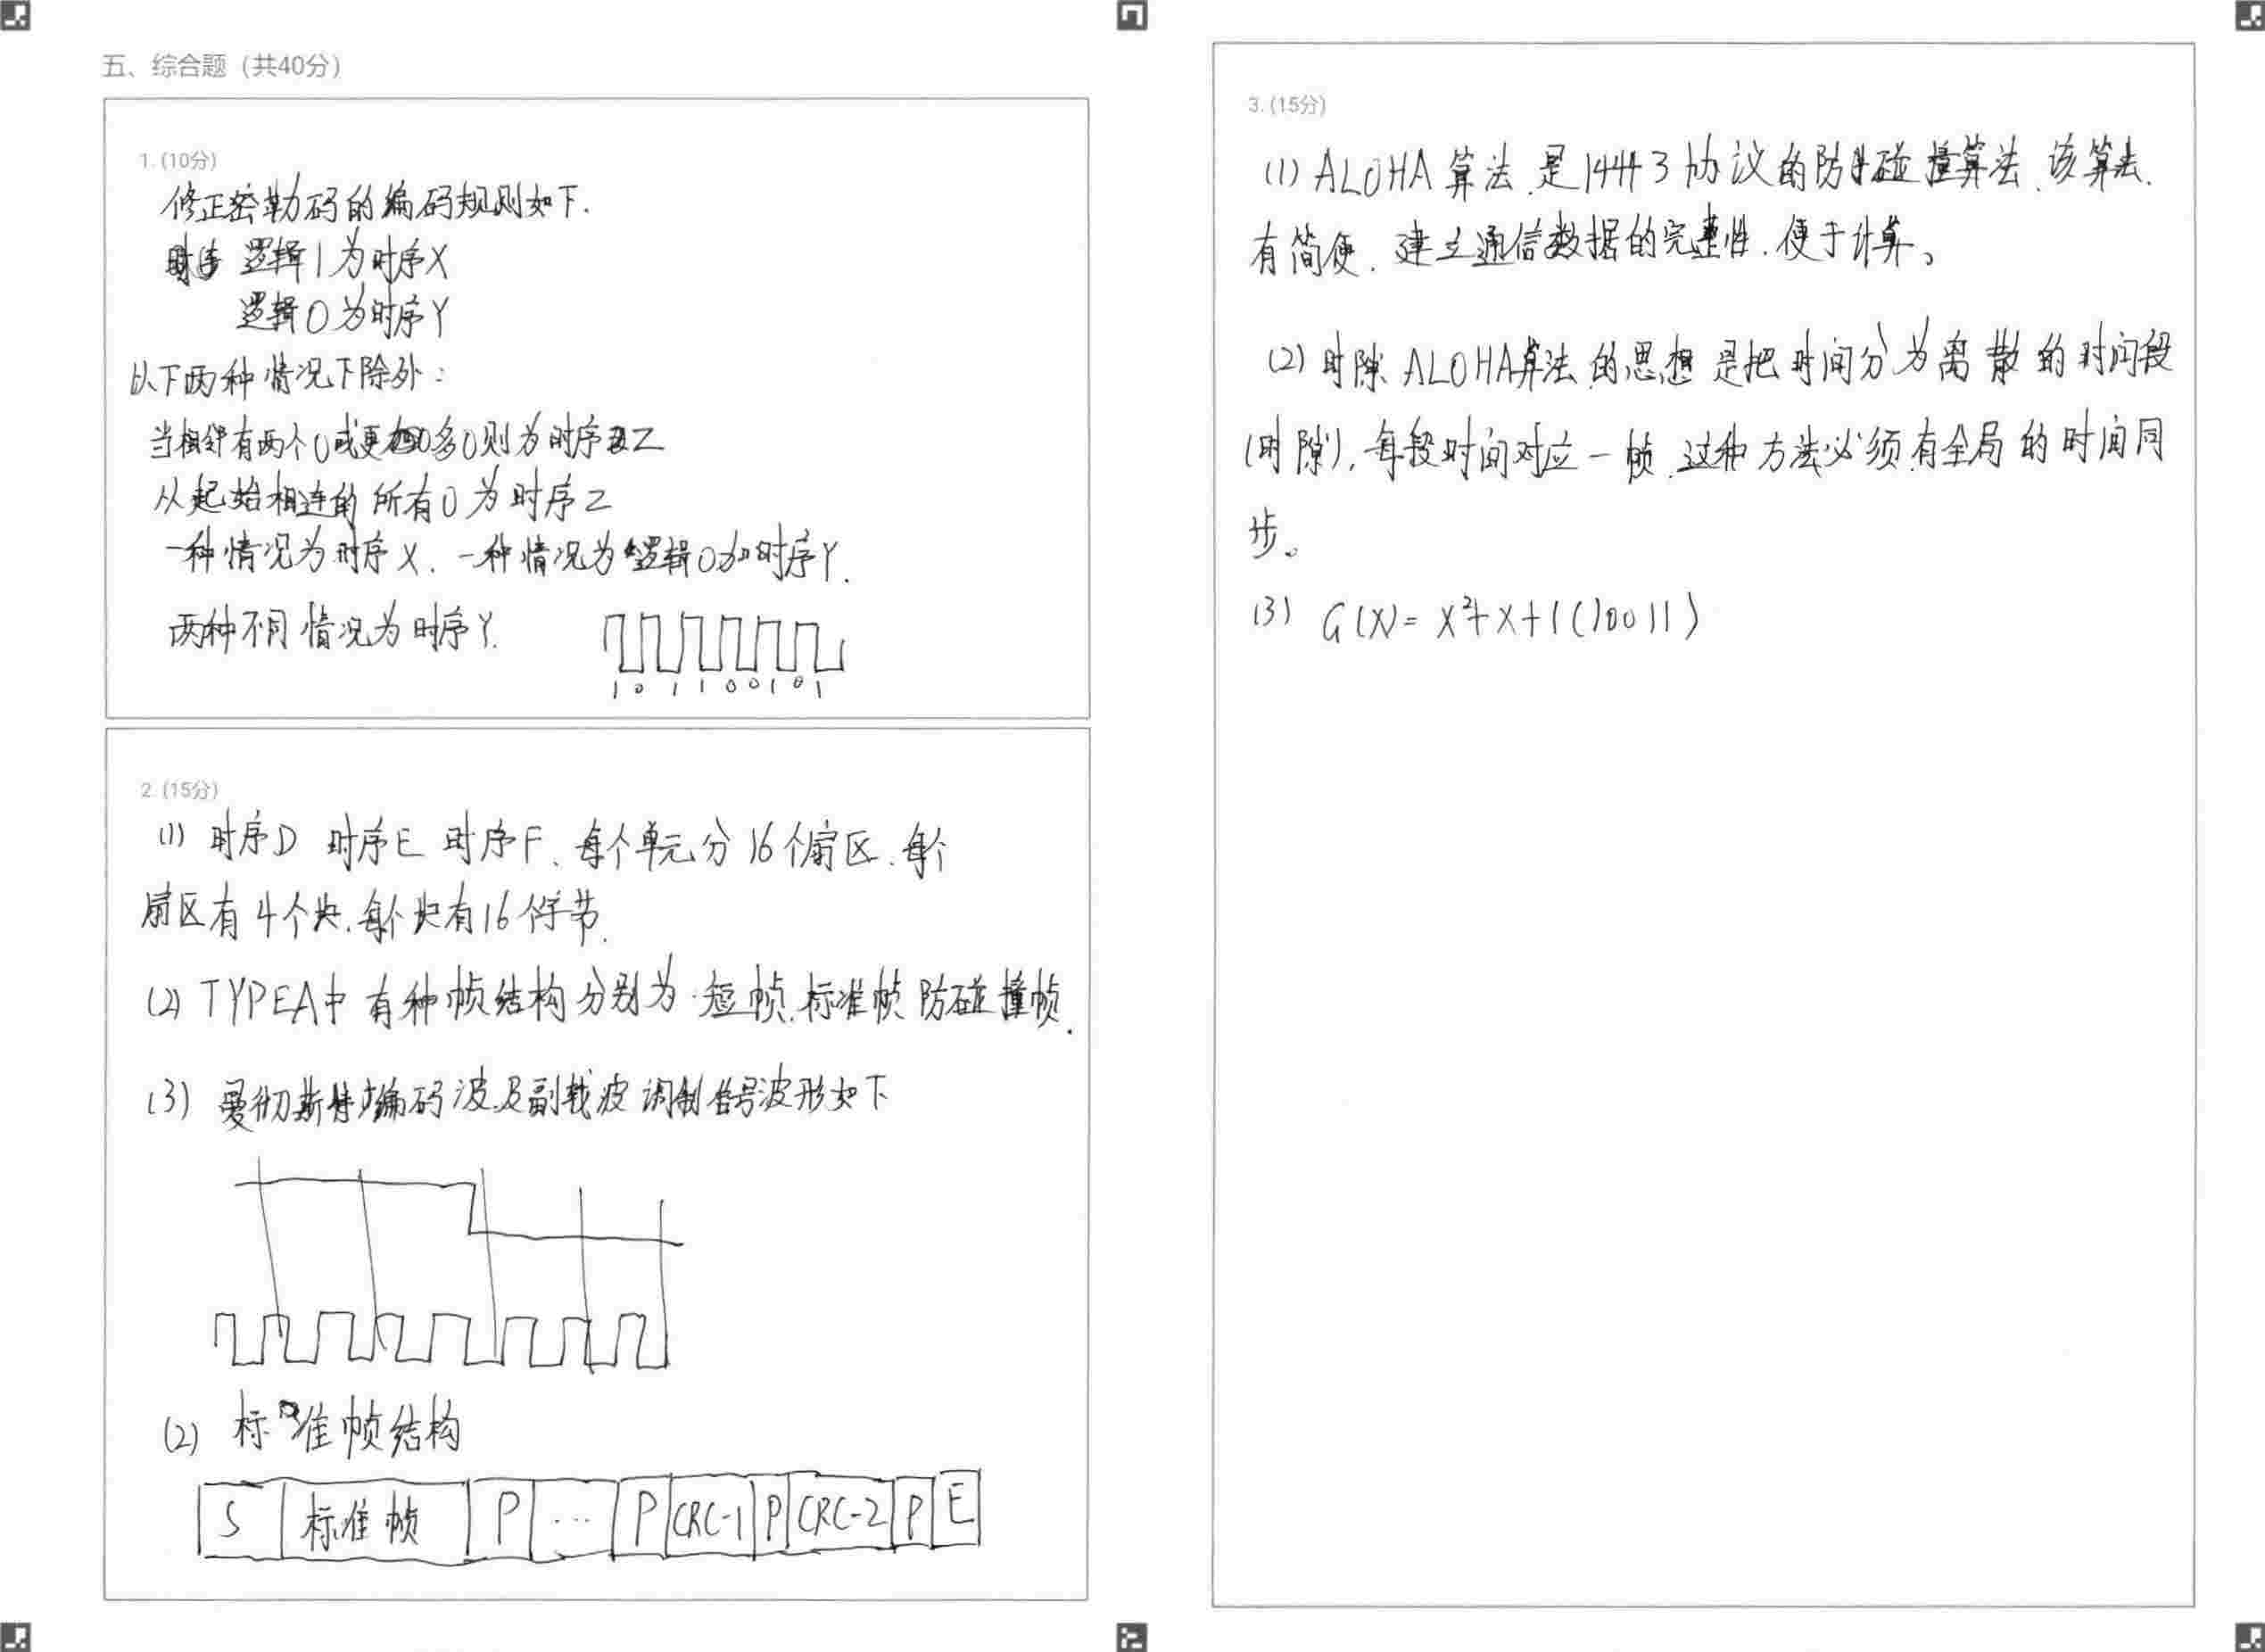 五、综合题（共40分）
1. (10分)
修正密勒码的编码规则如下.
逻辑1为时序X
逻辑0为时序Y
以下两种情况下除外：
当相邻有两个0或更多0则为时序Z
从起始相连的所有0为时序Z
一种情况为时序X. 一种情况为逻辑0为时序Y.
两种不同情况为时序Y.
1 0 1 1 0 0 1 0 1
2. (15分)
(1) 时序D 时序E 时序F、每个单元分16个扇区、每个
扇区有4个块.每个块有16个字节.
(2) TYPEA中有种帧结构分别为.短帧.标准帧 防碰撞帧.
(3) 曼彻斯特编码波及副载波调制信号波形如下
(2) 标准帧结构
S 标准帧 P ... P CRC-1 P CRC-2 P E
3. (15分)
(1) ALOHA算法.是14443协议的防碰撞算法、该算法.
有简便.建立通信数据的完整性.便于计算。
(2) 时隙ALOHA算法的思想是把时间分为离散的时间段
(时隙), 每段时间对应一帧.这种方法必须有全局的时间同
步。
(3) G(X)= X²+X+1(10011)